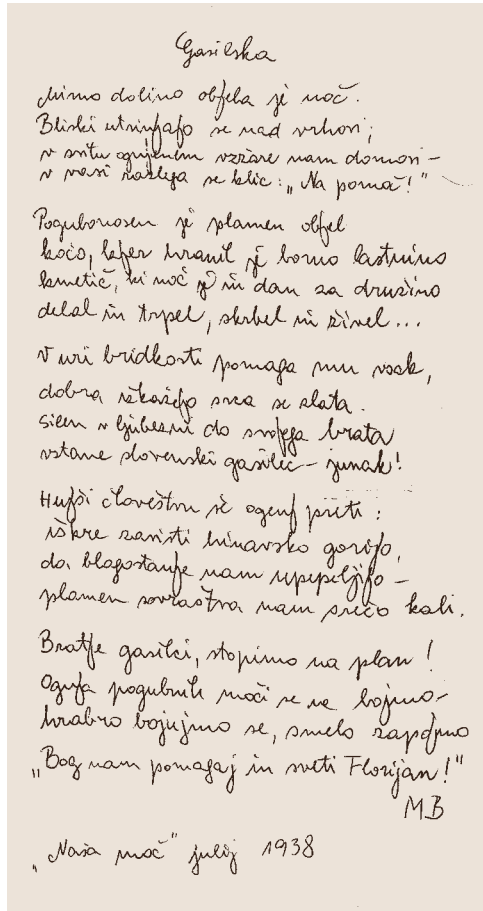 Gasilska
Mirno dolino objela je noč.
Bliski utrinjajo se nad vrhovi;
v svitu ognjenem vzžare nam domovi –
v vasi razlega se klic: „Na pomoč!"
Pogubonosen je plamen objel
kočo, kjer hranil je borno lastnino
kmetič, ki noč je in dan za družino
delal in trpel, skrbel in živel...
V uri bridkosti pomaga mu vsak,
dobra izkažejo srca se zlata.
Silen v ljubezni do svojega brata
vstane slovenski gasilec – junak!
Hujši človeštvu še ogenj preti:
iskre zavisti hinavsko gorijo,
da blagostanje nam upepelijo –
plamen sovraštva nam srečo kali.
Bratje gasilci, stopimo na plan!
Ognja pogubnih moči se ne bojmo –
hrabro bojujmo se, smelo zapojmo
„Bog nam pomagaj in sveti Florijan!"
MB
„Naša moč" julij 1938